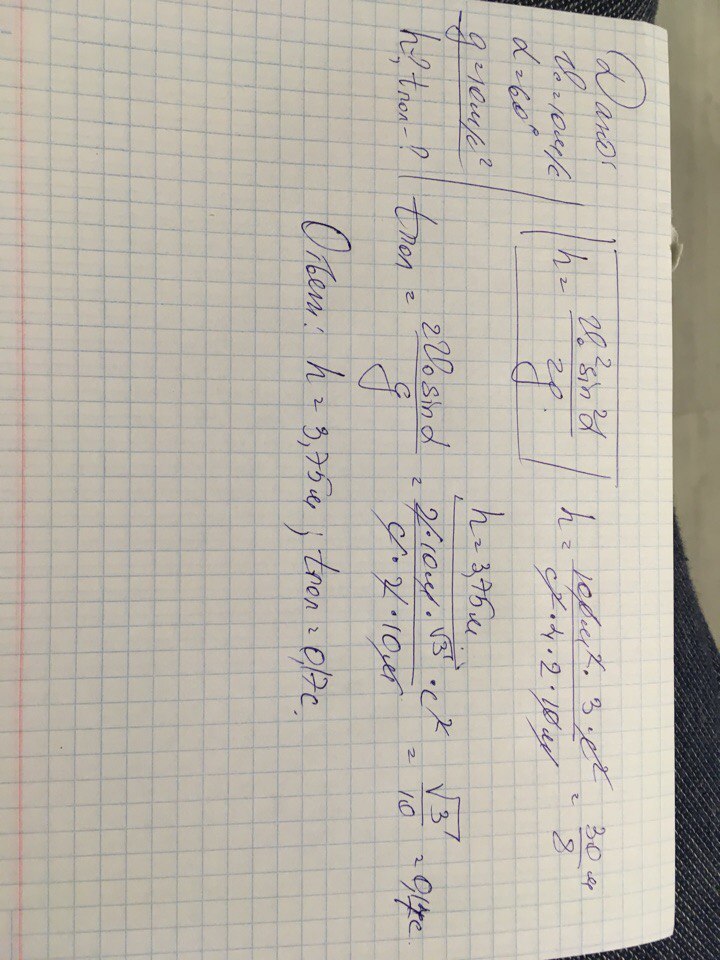 Дано:
V₀=10м/с
α=60°
g=10м/с²
h-?, tпол-?
h = V₀² sin²α / 2g
h = 100м² · 3 · с² / с² · 4 · 2 · 10м = 30 / 8 м
h = 3,75м
tпол = 2V₀ sinα / g = 2 · 10м · √3 · с² / с · 2 · 10м = √3 / 10 = 0,17с.
Ответ: h = 3,75м ; tпол = 0,17с.